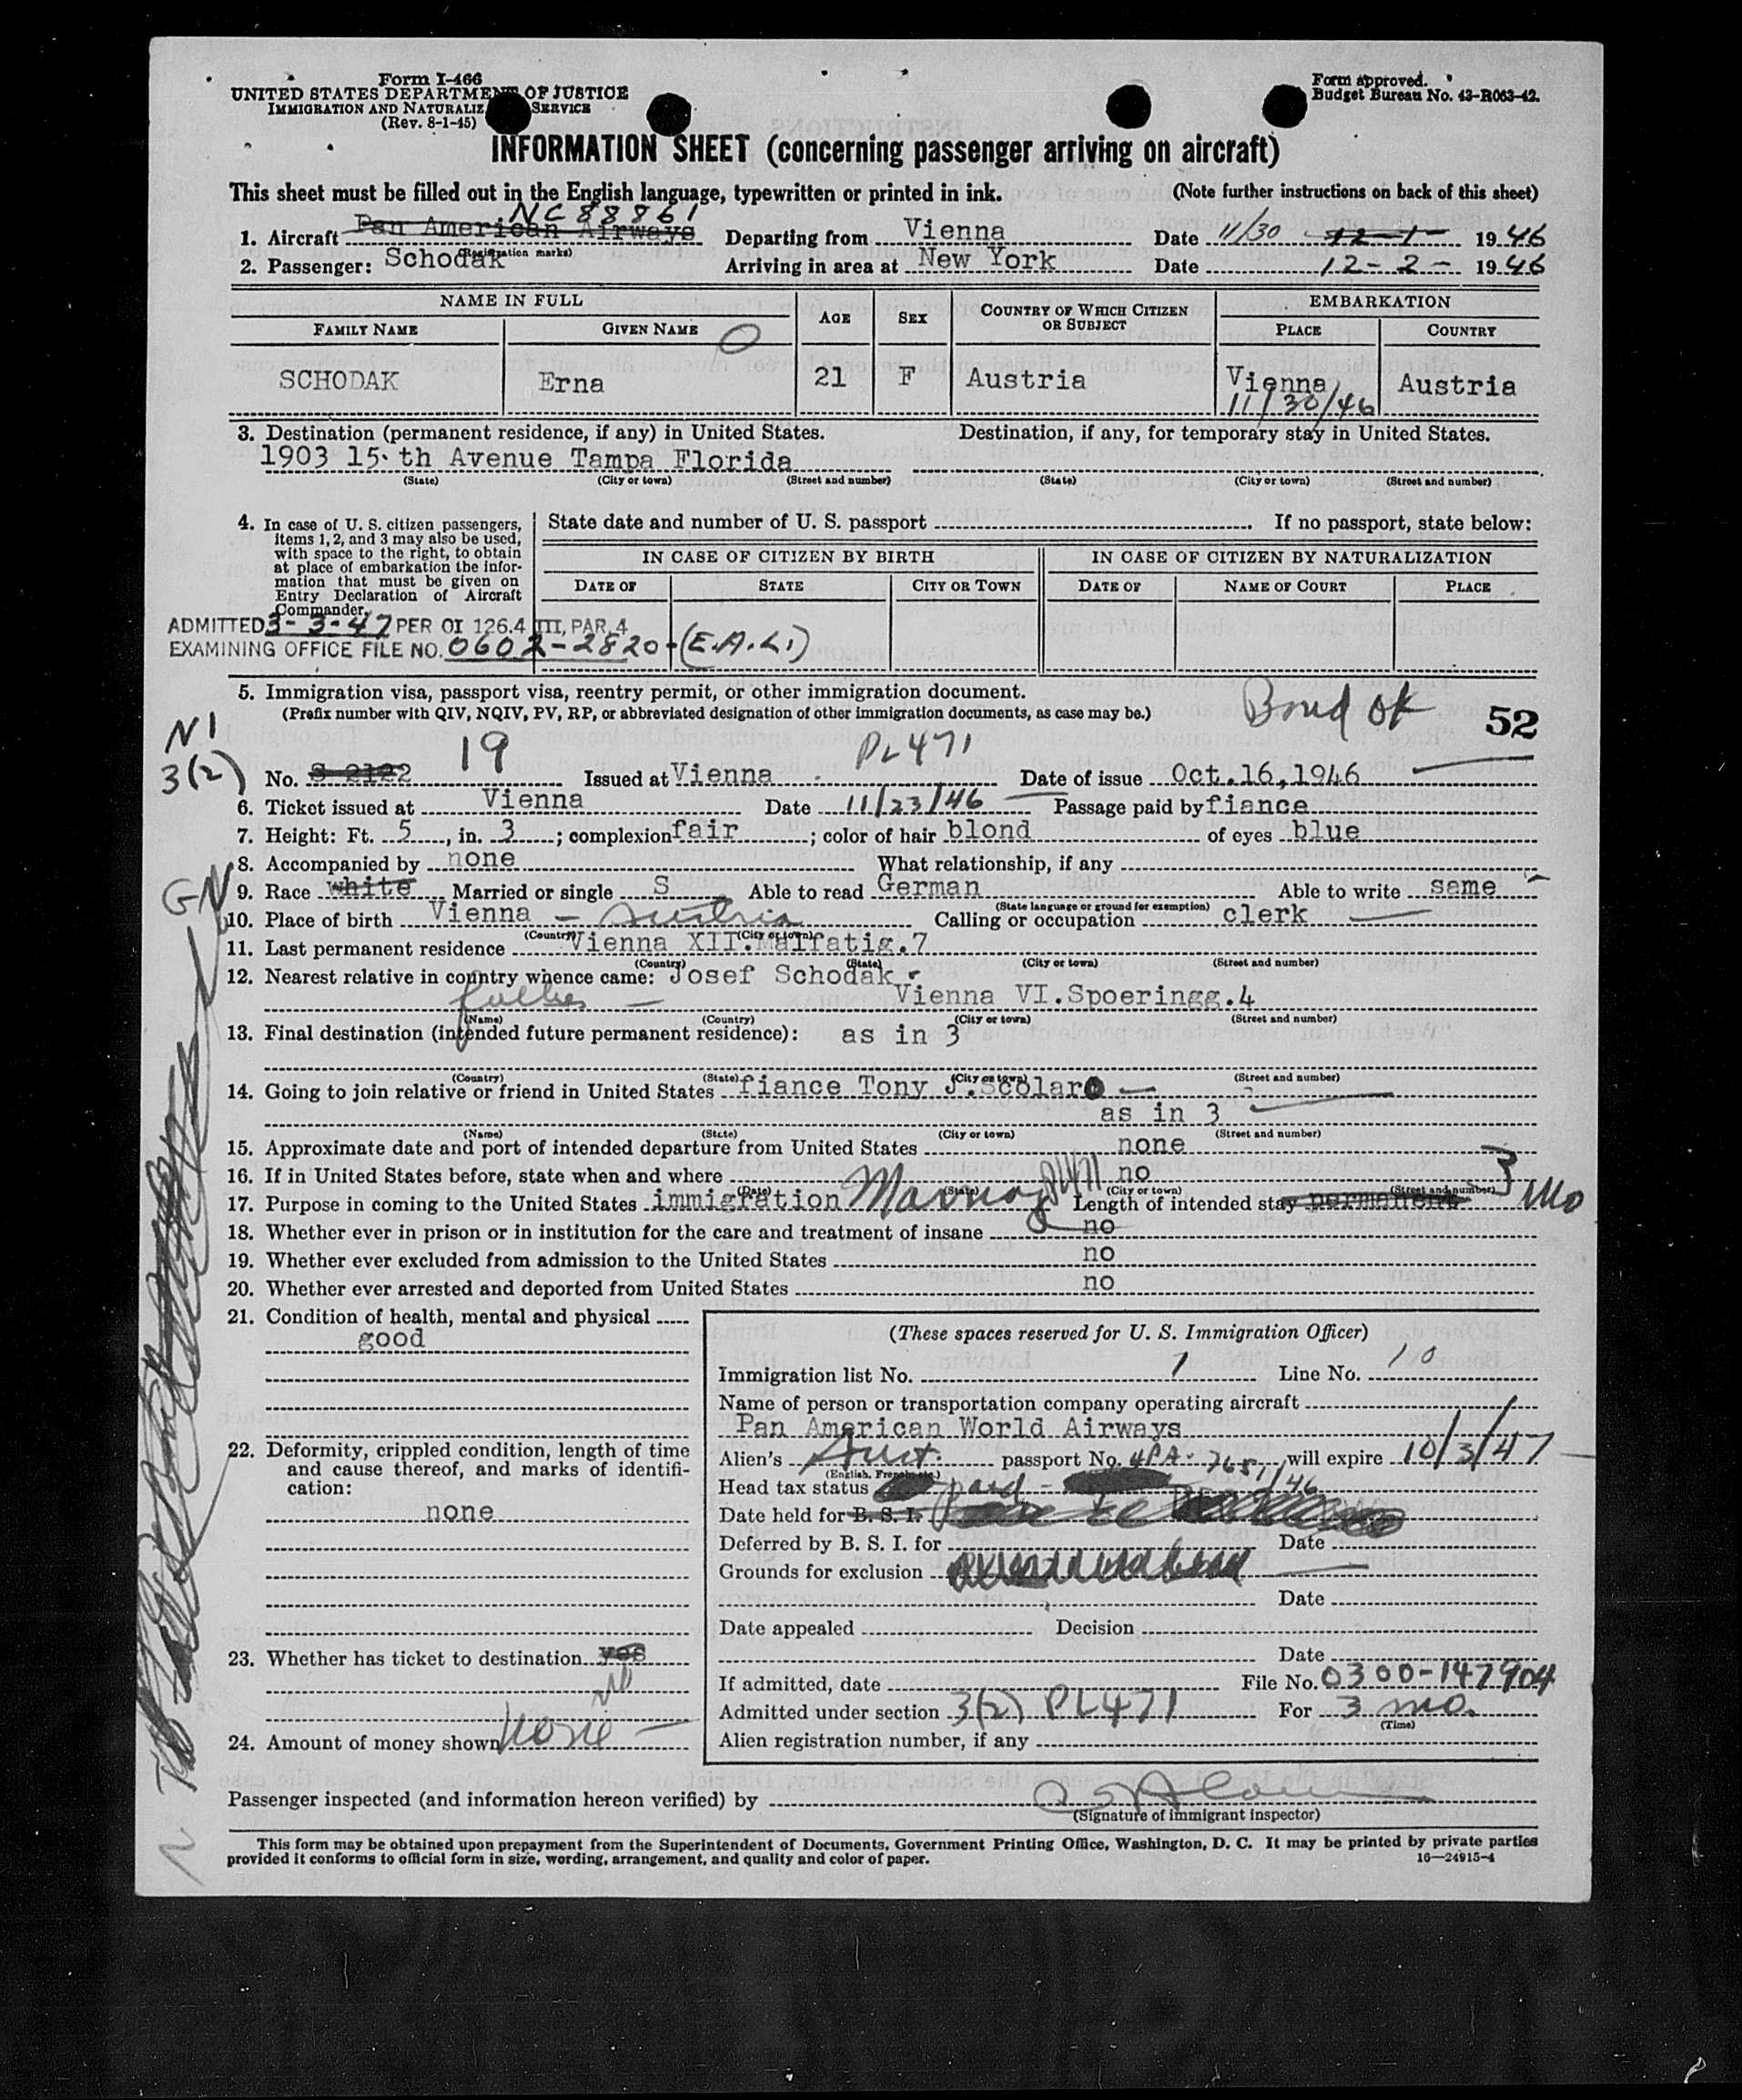 Form I-466
UNITED STATES DEPARTMENT OF JUSTICE
IMMIGRATION AND NATURALIZ SERVICE
(Rev. 8-1-45)
Form approved.
Budget Bureau No. 43-R063-42.
INFORMATION SHEET (concerning passenger arriving on aircraft)
This sheet must be filled out in the English language, typewritten or printed in ink. (Note further instructions on back of this sheet)
NC88861
1. Aircraft Pan American Airways Departing from Vienna Date 11/30 12-1- 1946
(Registration marks)
2. Passenger: Schodak Arriving in area at New York Date 12-2- 1946
NAME IN FULL AGE SEX COUNTRY OF WHICH CITIZEN OR SUBJECT EMBARKATION
FAMILY NAME GIVEN NAME PLACE COUNTRY
SCHODAK Erna 21 F Austria Vienna Austria
11/30/46
3. Destination (permanent residence, if any) in United States. Destination, if any, for temporary stay in United States.
1903 15 th Avenue Tampa Florida
(State) (City or town) (Street and number) (State) (City or town) (Street and number)
4. In case of U. S. citizen passengers, items 1, 2, and 3 may also be used, with space to the right, to obtain at place of embarkation the information that must be given on Entry Declaration of Aircraft Commander.
State date and number of U. S. passport If no passport, state below:
IN CASE OF CITIZEN BY BIRTH IN CASE OF CITIZEN BY NATURALIZATION
DATE OF STATE CITY OR TOWN DATE OF NAME OF COURT PLACE
ADMITTED 3-3-47 PER OI 126.4 III, PAR. 4
EXAMINING OFFICE FILE NO. 0602-2820-(E.A.L.)
5. Immigration visa, passport visa, reentry permit, or other immigration document.
(Prefix number with QIV, NQIV, PV, RP, or abbreviated designation of other immigration documents, as case may be.)
Bond ok 52
N1
3(2)
19 PL471
No. S 2122 Issued at Vienna Date of issue Oct.16,1946
6. Ticket issued at Vienna Date 11/23/46 Passage paid by fiance
7. Height: Ft. 5, in. 3; complexion fair; color of hair blond of eyes blue
8. Accompanied by none What relationship, if any
GN
9. Race white Married or single S Able to read German Able to write same
(State language or ground for exemption)
10. Place of birth Vienna - Austria Calling or occupation clerk
(Country) (City or town)
11. Last permanent residence Vienna XII. Malfatig.7
(Country) (State) (City or town) (Street and number)
12. Nearest relative in country whence came: Josef Schodak
father Vienna VI.Spoeringg.4
(Name) (Country) (City or town) (Street and number)
13. Final destination (intended future permanent residence): as in 3
(Country) (State) (City or town) (Street and number)
14. Going to join relative or friend in United States fiance Tony J.Scolaro
as in 3
(Name) (State) (City or town) (Street and number)
15. Approximate date and port of intended departure from United States none
16. If in United States before, state when and where no
(Date) (State) (City or town) (Street and number)
17. Purpose in coming to the United States immigration Marriage PL471 Length of intended stay permanent 3 mo
18. Whether ever in prison or in institution for the care and treatment of insane no
19. Whether ever excluded from admission to the United States no
20. Whether ever arrested and deported from United States no
21. Condition of health, mental and physical
good
22. Deformity, crippled condition, length of time and cause thereof, and marks of identification:
none
23. Whether has ticket to destination yes
no
24. Amount of money shown None
(These spaces reserved for U. S. Immigration Officer)
Immigration list No. 1 Line No. 10
Name of person or transportation company operating aircraft
Pan American World Airways
Alien's Aust. passport No. 4PA-7651/46 will expire 10/3/47
(English, French, etc.)
Head tax status paid
Date held for B. S. I.
Deferred by B. S. I. for Date
Grounds for exclusion
Date
Date appealed Decision
Date
If admitted, date File No. 0300-147904
Admitted under section 3(2) PL471 For 3 mo.
(Time)
Alien registration number, if any
Passenger inspected (and information hereon verified) by
(Signature of immigrant inspector)
This form may be obtained upon prepayment from the Superintendent of Documents, Government Printing Office, Washington, D. C. It may be printed by private parties
provided it conforms to official form in size, wording, arrangement, and quality and color of paper. 16—24915-4